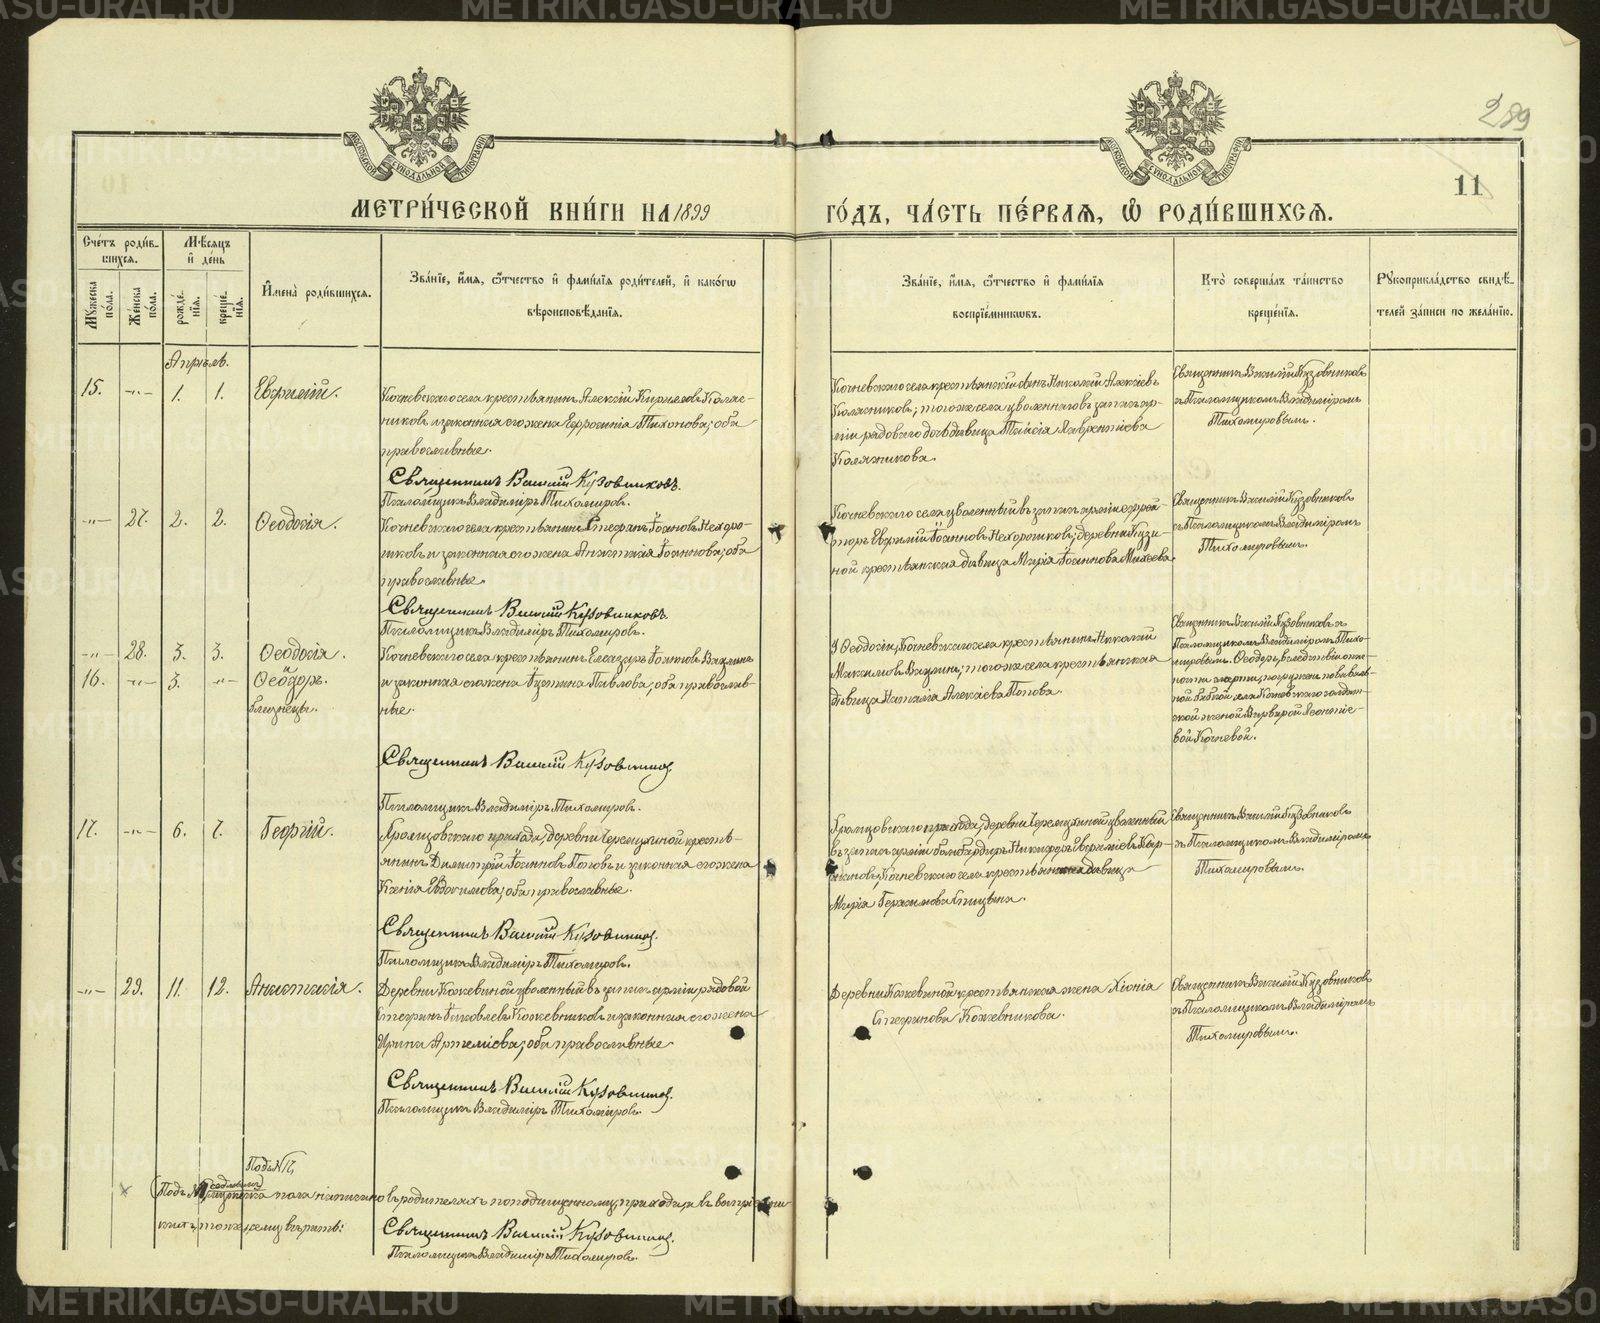 METRIKI.GASO-URAL.RU
289
11
МОСКОВСКОЙ СѴНОДАЛЬНОЙ ТИПОГРАФІИ
МЕТРИ́ЧЕСКОЙ КНИ́ГИ НА 1899
ГО́ДЪ, ЧА́СТЬ ПЕ́РВАЯ, Ѽ РОДИ́ВШИХСЯ.
Сче́тъ роди́в-
шихся.
Мѣсяцъ
и҆ де́нь
Мꙋжеска по́ла.
Же́нска по́ла.
рожде́-
нїѧ.
креще́-
нїѧ.
И҆мена̀ роди́вшихся.
Зва́нїе, и҆́мя, ѻ҆́тчество и҆ фами́лїя роди́телей, и҆ како́гѡ
вѣроисповѣ́данїя.
Зва́нїе, и҆́мя, ѻ҆́тчество и҆ фами́лїя
воспрїе́мниковъ.
Кто̀ соверша́лъ та́инство
креще́нїя.
Рꙋкоприкла́дство свидѣ́-
телей за́писи по жела́нїю.
Апрѣль.
15. -„- 1. 1. Евфимій.
Кочневскаго села крестьянинъ Алексій Кирилловъ Колас-
никовъ и законная его жена Евфросинія Тихонова; оба
православные.
Священникъ Василій Кузовниковъ.
Псаломщикъ Владиміръ Тихомировъ.
Кочневскаго села крестьянскій сынъ Николай Алексіевъ
Коласниковъ; того же села уволеннаго въ запасъ ар-
міи рядоваго дочь дѣвица Таисія Лаврентіева
Священникъ Василій Кузовниковъ
съ Псаломщикомъ Владиміромъ
Тихомировымъ.
-„- 27. 2. 2. Ѳеодосія.
Кочневскаго села крестьянинъ Стефанъ Іоанновъ Нехоро-
шковъ и законная его жена Анастасія Іоаннова; оба
православные.
Священникъ Василій Кузовниковъ.
Псаломщикъ Владиміръ Тихомировъ.
Кочневскаго села уволенный въ запасъ арміи ефрей-
торъ Евфимій Іоанновъ Нехорошковъ; деревни Кузи-
ной крестьянская дѣвица Марія Іоаннова Михеева.
Священникъ Василій Кузовниковъ
съ Псаломщикомъ Владиміромъ
Тихомировымъ.
-„- 28. 3. 3. Ѳеодосія.
и
16. -„- 3. -„- Ѳеодоръ.
близнецы.
Кочневскаго села крестьянинъ Елеазаръ Іоанновъ Ваулинъ
и законная его жена Іустина Павлова; оба православ-
ные.
Священникъ Василій Кузовниковъ
Псаломщикъ Владиміръ Тихомировъ.
У Ѳеодосіи, Кочневскаго села крестьянинъ Николай
Максимовъ Ваулинъ; того же села крестьянская
дѣвица Наталія Алексіева Попова.
Священникъ Василій Кузовниковъ съ
Псаломщикомъ Владиміромъ Тихо-
мировымъ. Ѳеодоръ, вслѣдствіи опас-
ности смерти, погруженъ повиваль-
ной бабкой села Кочневскаго солдат-
ской женой Варварой Леонтіе-
вой Кочневой.
17. -„- 6. 7. Георгій.
Храмцовскаго прихода, деревни Черемхиной кресть-
янинъ Димитрій Іоанновъ Поповъ и законная его жена
Ксенія Евдокимова; оба православные.
Священникъ Василій Кузовниковъ.
Псаломщикъ Владиміръ Тихомировъ.
Храмцовскаго прихода, деревни Черемхиной уволенный
въ запасъ арміи бомбардиръ Никифоръ
Кочневскаго села крестьянская дѣвица
Марія Герасимова Спицына.
Священникъ Василій Кузовниковъ
съ Псаломщикомъ Владиміромъ
Тихомировымъ.
-„- 29. 11. 12. Анастасія.
Деревни Кожевиной уволенный въ запасъ арміи рядовой
Стефанъ Іаковлевъ Кожевниковъ и законная его жена
Ирина Артеміева; оба православные.
Священникъ Василій Кузовниковъ.
Псаломщикъ Владиміръ Тихомировъ.
Деревни Кожевиной крестьянская жена Хіонія
Стефанова Кожевникова.
Священникъ Василій Кузовниковъ
съ Псаломщикомъ Владиміромъ
Тихомировымъ.
Подъ №17
пола написано въ родителяхъ по подчищенному: прихода, и въ воспріемни-
кахъ тоже, сему вѣрить:
Священникъ Василій Кузовниковъ.
Псаломщикъ Владиміръ Тихомировъ.